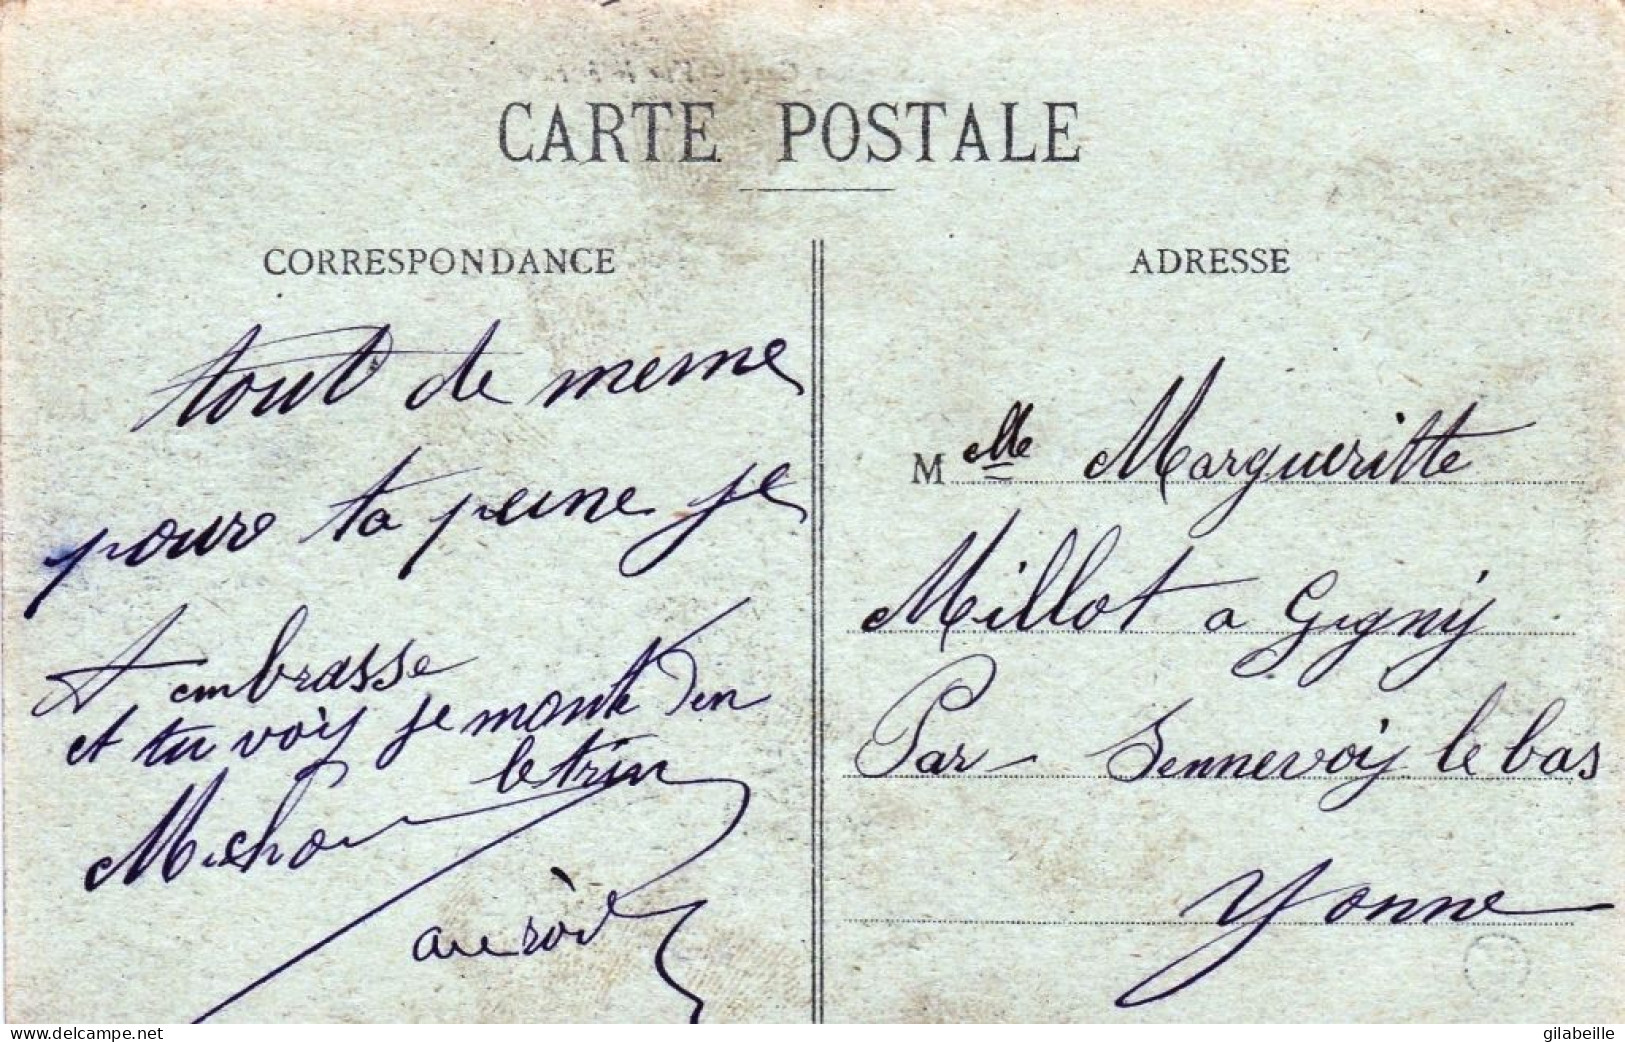 CARTE POSTALE
CORRESPONDANCE
tout de meme
pour ta peine je
t embrasse
et tu voÿ je monte den
letrin
Michou
ADRESSE
M elle Margueritte
Millot a Gigny
Par Sennevoiÿ le bas
Yonne
www.delcampe.net
gilabeille